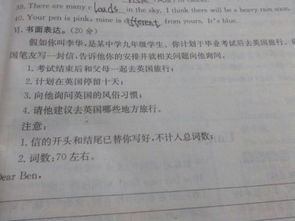 39. There are many clouds in the sky. I think there will be a heavy rain soon.
40. Your pen is pink; mine is different from yours. It's blue.
Ⅵ. 书面表达。(20 分)
假如你叫李华,是某中学九年级学生。你计划于毕业考试后去英国旅行,
国笔友写一封信,告诉他你的安排并就相关问题向他询问。
1. 考试结束后和父母一起去英国旅行;
2. 计划在英国停留十天;
3. 向他询问英国的风俗习惯;
4. 请他建议去英国哪些地方旅行。
注意:
1. 信的开头和结尾已替你写好,不计入总词数;
2. 词数:70 左右。
Dear Ben,